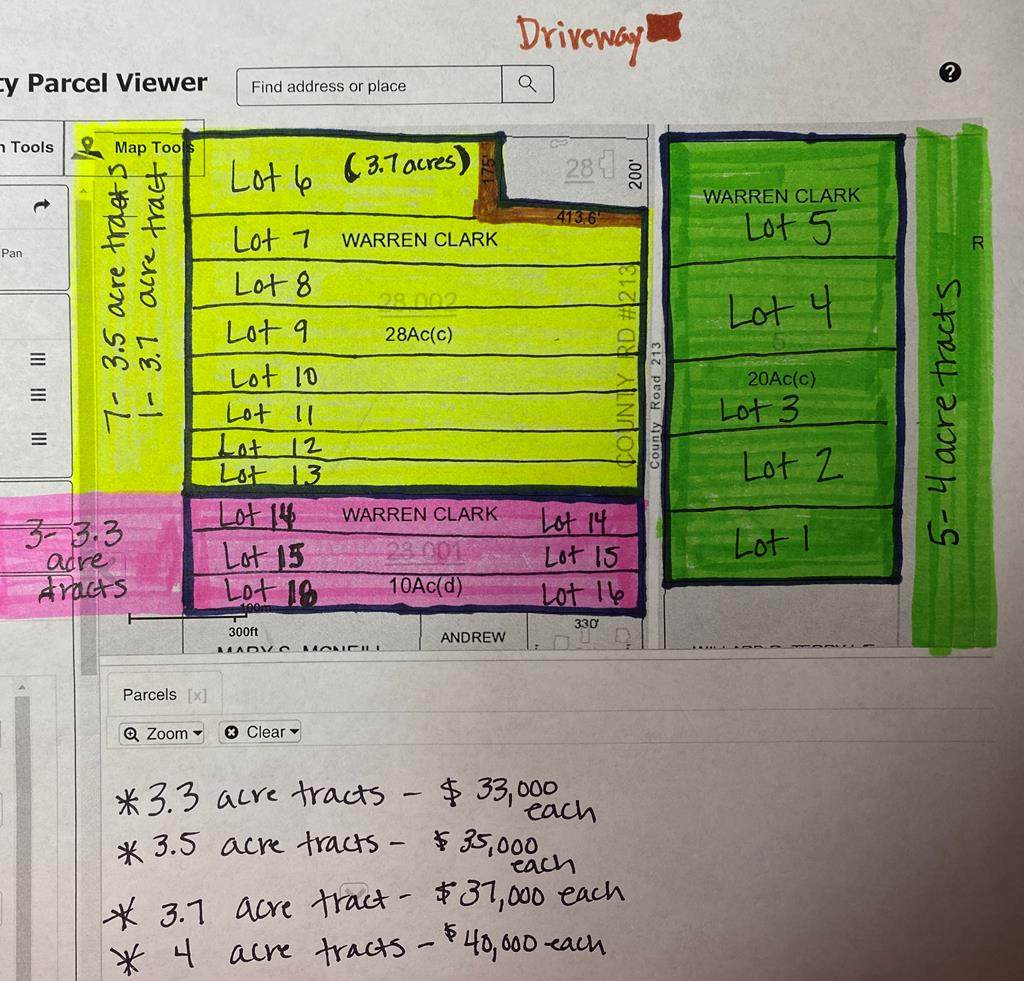 Driveway
ty Parcel Viewer
Find address or place
n Tools
Map Tools
Pan
7- 3.5 acre tracts
1- 3.7 acre tract
Lot 6 (3.7 acres)
175'
28
200'
413.6'
Lot 7 WARREN CLARK
Lot 8
28.002
Lot 9 28Ac(c)
Lot 10
Lot 11
Lot 12
Lot 13
COUNTY RD #213
County Road 213
WARREN CLARK
Lot 5
Lot 4
20Ac(c)
Lot 3
Lot 2
Lot 1
5- 4 acre tracts
R
3- 3.3
acre
tracts
Lot 14 WARREN CLARK Lot 14
Lot 15 28.001 Lot 15
Lot 16 10Ac(d) Lot 16
100m
300ft
330'
MARY S. MCNEILL
ANDREW
Parcels [x]
Zoom Clear
* 3.3 acre tracts - $ 33,000
each
* 3.5 acre tracts - $ 35,000
each
* 3.7 acre tract - $37,000 each
* 4 acre tracts - $40,000 each